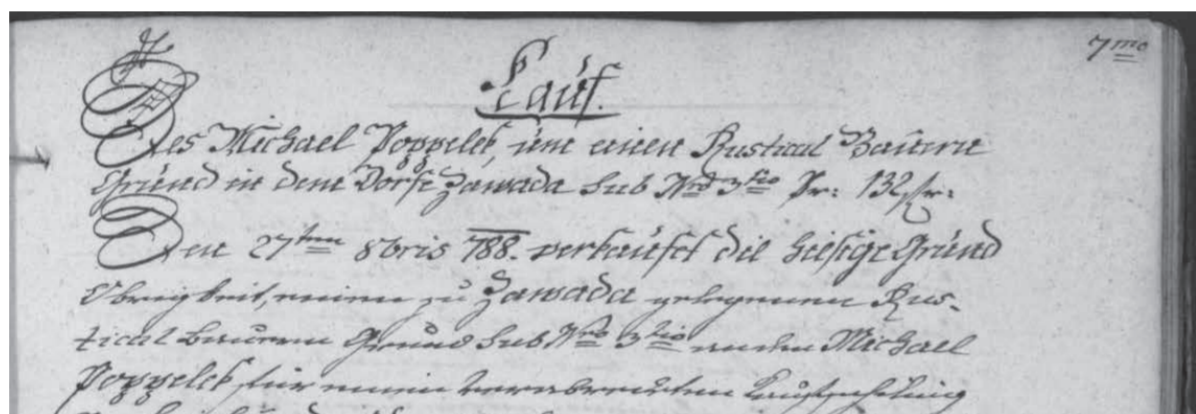 7mo
Kauf.
Des Michael Poppelek, um einen Rustical Bauern
Grund in dem Dorfe Zawada sub Nro 3tio Pr: 132 fr:
Den 27ten 8bris 788. verkaufet die hiesige Grund
Obrigkeit, einen zu Zawada gelegenen Rus-
tical Bauern Grund sub Nro 3tio an den Michael
Poppelek für einen verabredeten Kaufschilling